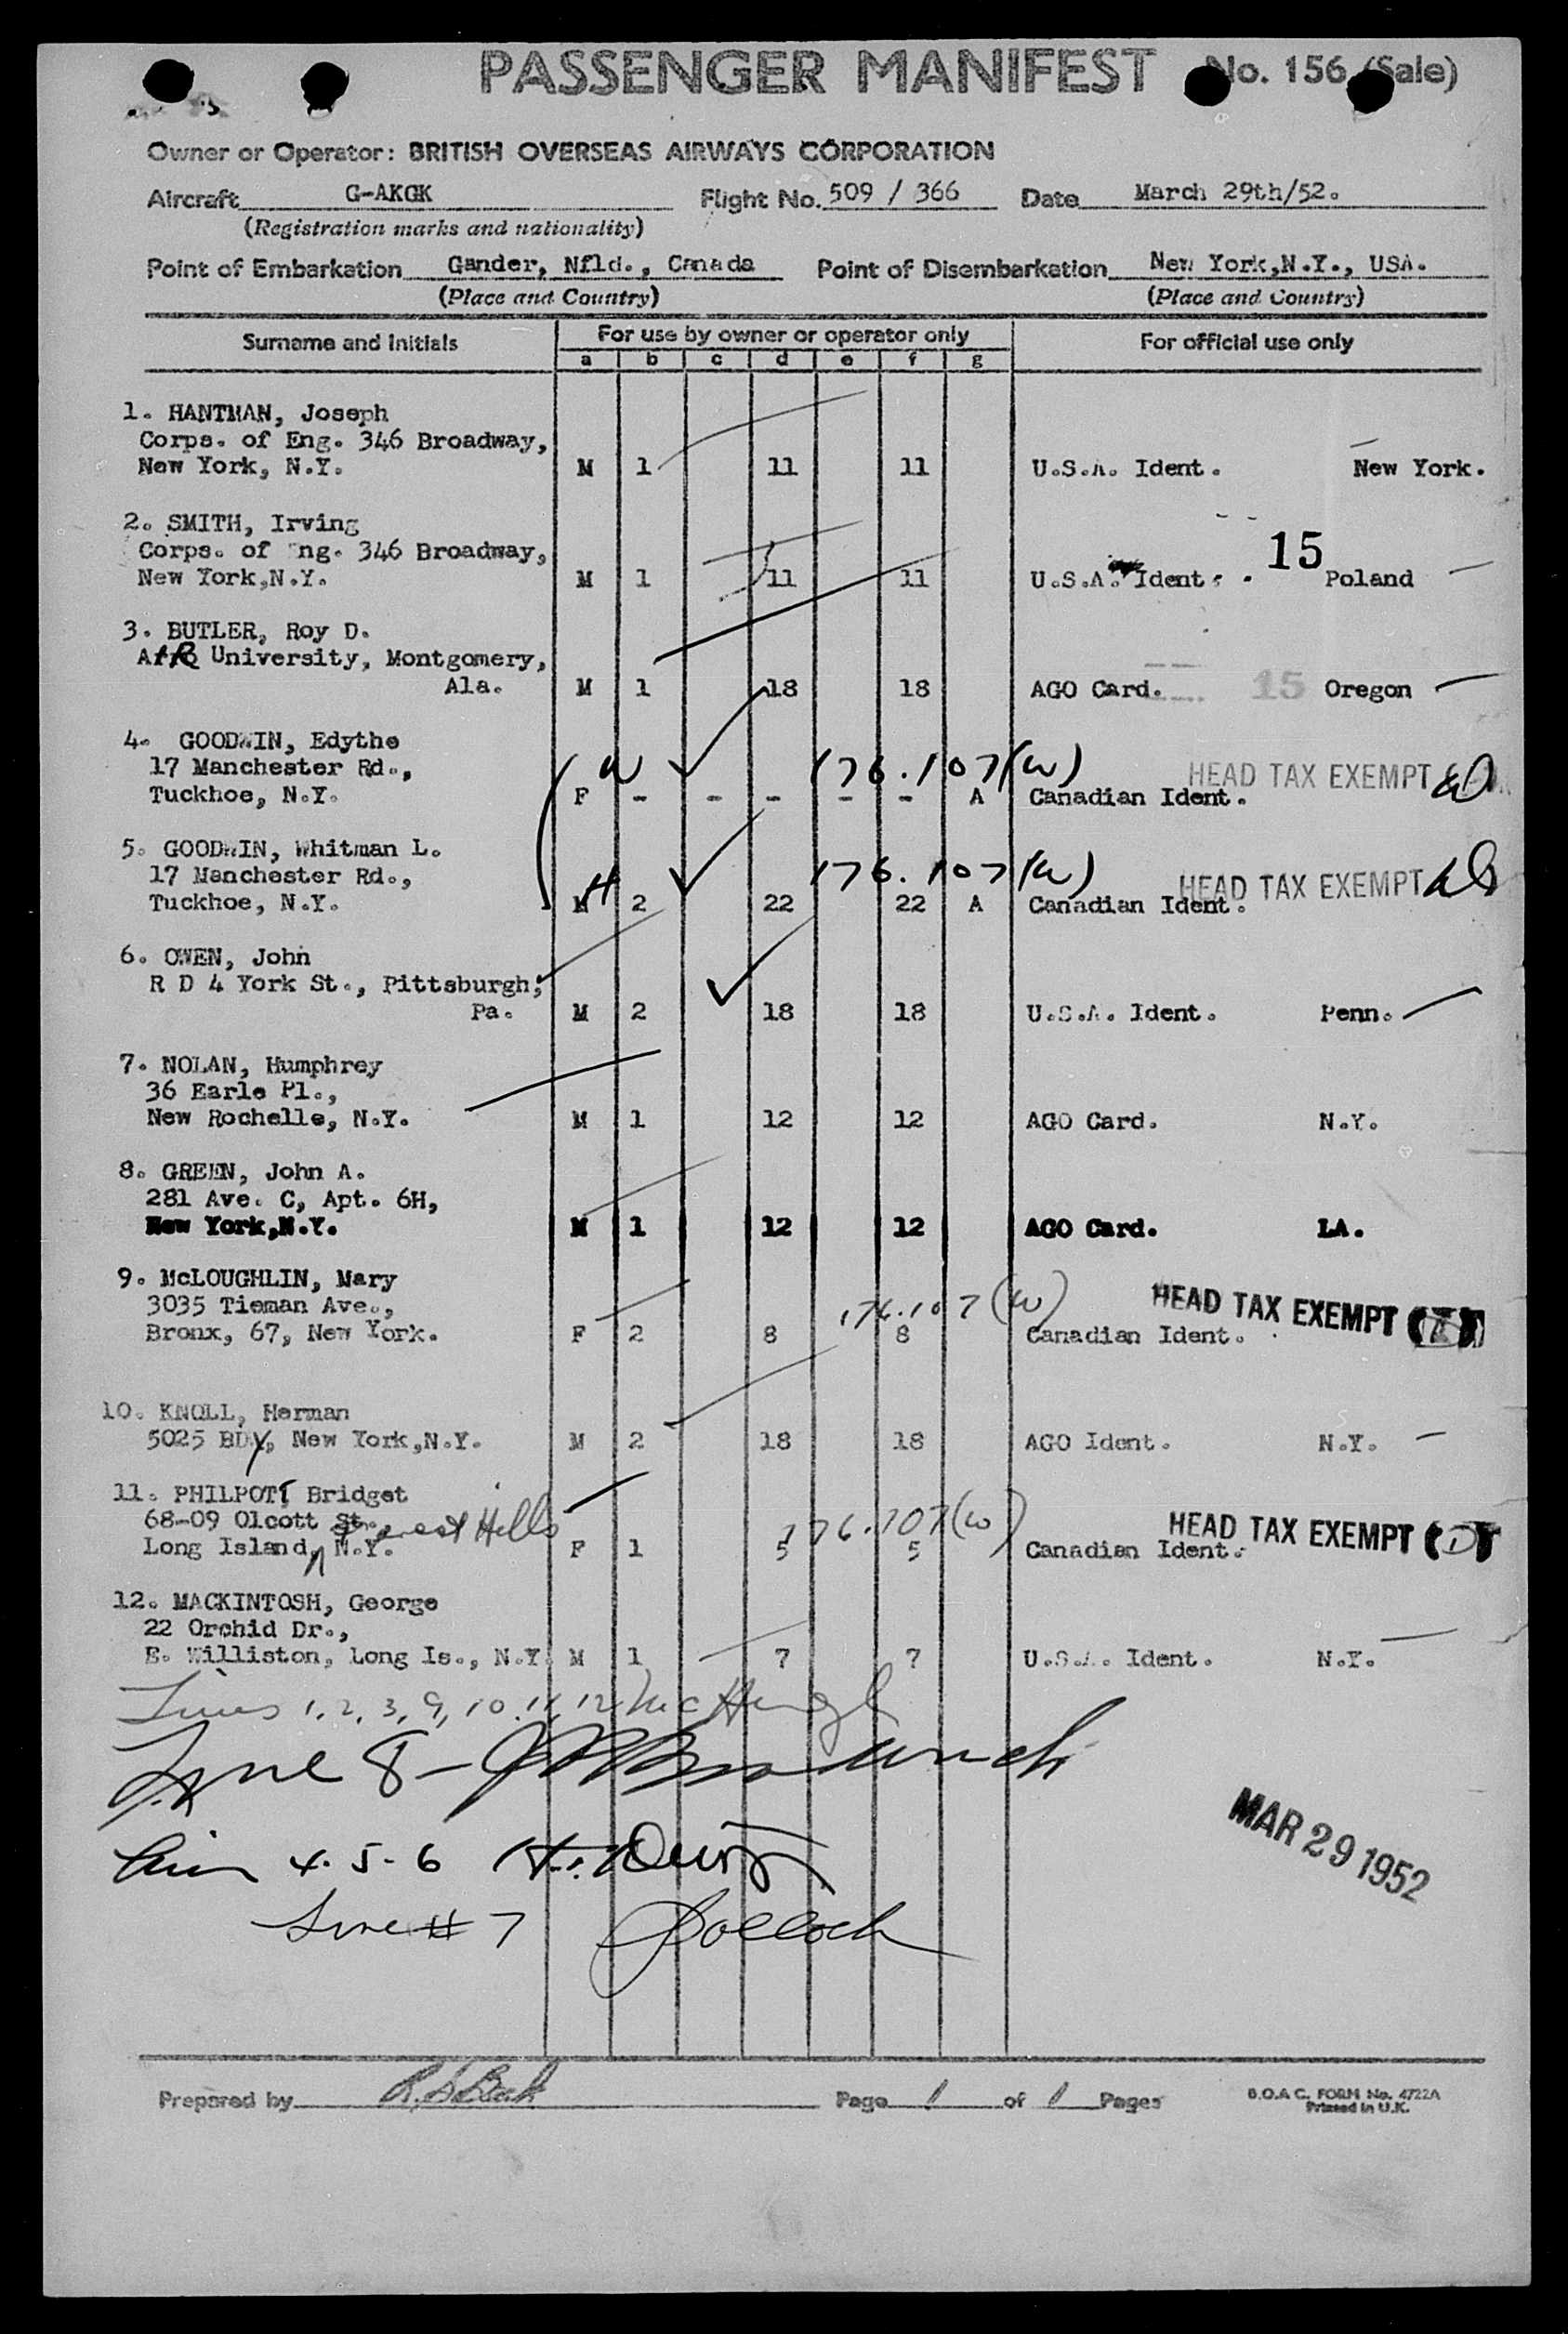 PASSENGER MANIFEST No. 156 (Sale)
Owner or Operator: BRITISH OVERSEAS AIRWAYS CORPORATION
Aircraft G-AKGK Flight No. 509 / 366 Date March 29th/52.
(Registration marks and nationality)
Point of Embarkation Gander, Nfld., Canada Point of Disembarkation New York,N.Y., USA.
(Place and Country) (Place and Country)
Surname and Initials For use by owner or operator only For official use only
a b c d e f g
1. HANTMAN, Joseph
Corps. of Eng. 346 Broadway,
New York, N.Y. M 1 11 11 U.S.A. Ident. New York.
2. SMITH, Irving
Corps. of ng. 346 Broadway, 15
New York,N.Y. M 1 11 11 U.S.A. Ident. Poland
3. BUTLER, Roy D.
AIR University, Montgomery,
Ala. M 1 18 18 AGO Card. 15 Oregon
4. GOODWIN, Edythe
17 Manchester Rd., W 176.107(W) HEAD TAX EXEMPT
Tuckhoe, N.Y. F - - - - - A Canadian Ident.
5. GOODWIN, Whitman L.
17 Manchester Rd., H 176.107(W) HEAD TAX EXEMPT
Tuckhoe, N.Y. M 2 22 22 A Canadian Ident.
6. OWEN, John
R D 4 York St., Pittsburgh,
Pa. M 2 18 18 U.S.A. Ident. Penn.
7. NOLAN, Humphrey
36 Earle Pl.,
New Rochelle, N.Y. M 1 12 12 AGO Card. N.Y.
8. GREEN, John A.
281 Ave. C, Apt. 6H,
New York,N.Y. M 1 12 12 AGO Card. LA.
9. McLOUGHLIN, Mary
3035 Tieman Ave., 176.107(W) HEAD TAX EXEMPT
Bronx, 67, New York. F 2 8 8 Canadian Ident.
10. KNOLL, Herman
5025 BDY, New York,N.Y. M 2 18 18 AGO Ident. N.Y.
11. PHILPOTT Bridget
68-09 Olcott St., Forest Hills 176.107(W) HEAD TAX EXEMPT
Long Island, N.Y. F 1 5 5 Canadian Ident.
12. MACKINTOSH, George
22 Orchid Dr.,
E. Williston, Long Is., N.Y. M 1 7 7 U.S.A. Ident. N.Y.
Lines 1, 2, 3, 9, 10, 11, 12
Line 8 -
MAR 29 1952
Lines 4. 5 - 6
Line # 7 Pollock
Prepared by Page 1 of 1 Pages B.O.A C. FORM No. 4722A
Printed in U.K.